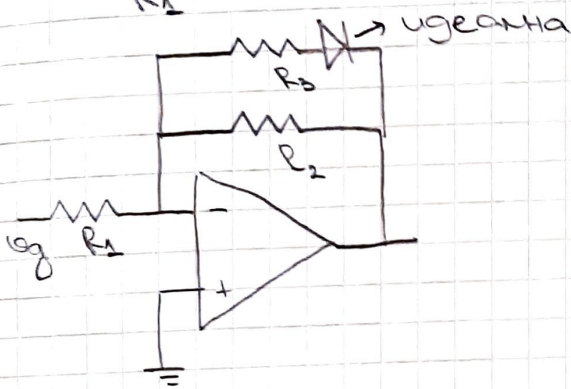 R1
→ идеална
R3
R2
υg R1
-
+